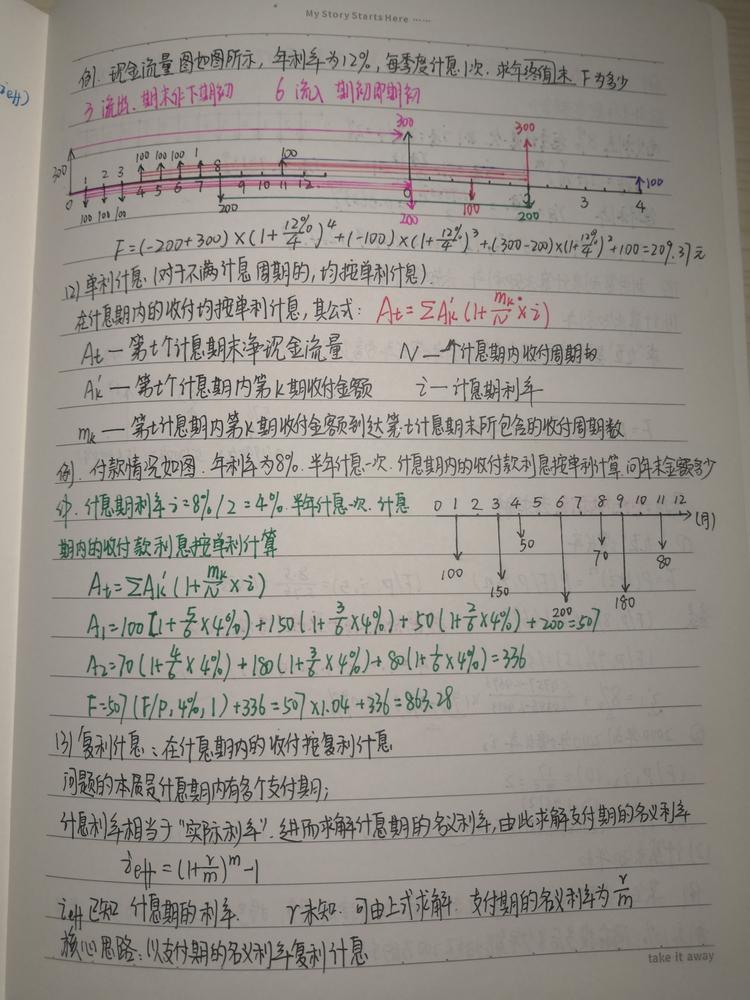 My Story Starts Here ……
ieff)
例. 现金流量图如图所示, 年利率为12%, 每季度计息1次. 求年终值末 F为多少
3 流出. 期末非下期初 6 流入 期初即期初
300 300
100 100 100 1 100
300
1 2 3 8
0 4 5 6 7 9 10 11 12 0 2 3 4 100
100 100 100 200 200 100 200
F=(-200+300)×(1+12%/4)^4+(-100)×(1+12%/4)^3+(300-200)×(1+12%/4)^2+100=209.37元
(2)单利计息 (对于不满计息周期的, 均按单利计息)
在计息期内的收付均按单利计息, 其公式: At=ΣAk'(1+mk/N×i)
At—第t个计息期末净现金流量 N—一个计息期内收付周期的
Ak'—第t个计息期内第k期收付金额 i—计息期利率
mk—第t计息期内第k期收付金额到达第t计息期末所包含的收付周期数
例. 付款情况如图. 年利率为8%. 半年计息一次. 计息期内的收付款利息按单利计算. 问年末金额多少
计息期利率i=8%/2=4%. 半年计息一次. 计息
0 1 2 3 4 5 6 7 8 9 10 11 12 (月)
期内的收付款利息按单利计算
100 150 50 200 70 180 80
At=ΣAk'(1+mk/N×i)
A1=100[1+5/6×4%)+150(1+3/6×4%)+50(1+2/6×4%)+200=507
A2=70(1+4/6×4%)+180(1+3/6×4%)+80(1+1/6×4%)=336
F=507(F/P,4%,1)+336=507×1.04+336=863.28
(3)复利计息: 在计息期内的收付按复利计息
问题的本质是计息期内有多个支付期;
计息利率相当于"实际利率". 进而求解计息期的名义利率, 由此求解支付期的名义利率
ieff=(1+r/m)^m-1
ieff已知 计息期的利率. r未知. 可由上式求解. 支付期的名义利率为r/m
核心思路: 以支付期的名义利率复利计息
take it away